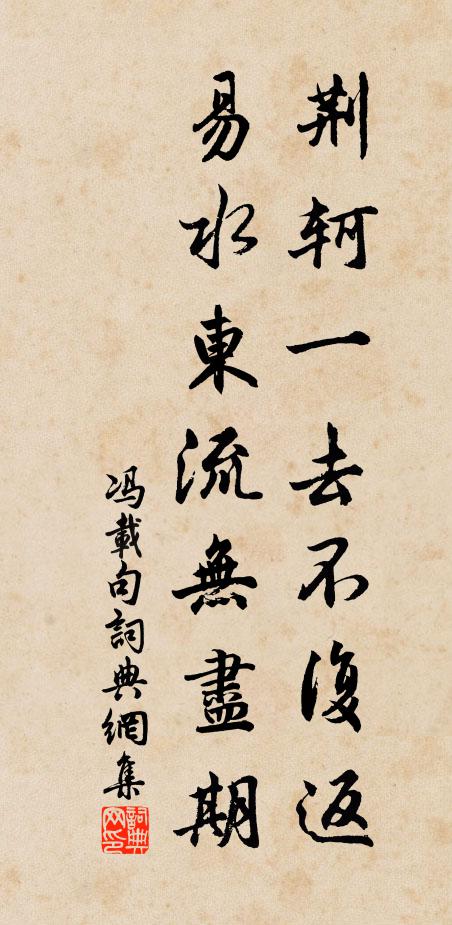 荆軻一去不復返
易水東流無盡期
冯載句詞典網集
詞典
网印